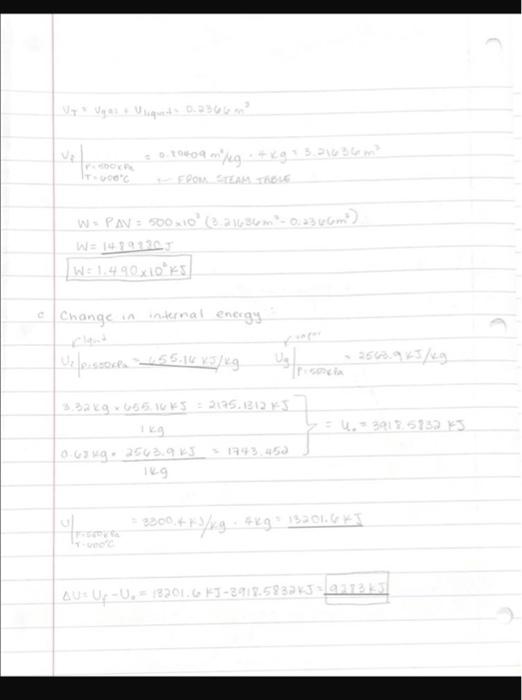 V_T = V_gas + V_liquid = 0.2366 m³
V_f | P=500kPa T=600°C = 0.80409 m³/kg · 4kg = 3.21636 m³
← FROM STEAM TABLE
W = PΔV = 500x10³ (3.21636m³ - 0.2366m³)
W = 1489880 J
W = 1.490x10³ KJ
c Change in internal energy:
liquid vapor
P=500kPa = 655.16 KJ/kg Ug | P=500kPa = 2563.9 KJ/kg
3.32kg × 655.16 KJ = 2175.1312 KJ
1 kg
= U₀ = 3918.5832 KJ
0.68kg · 2563.9 KJ = 1743.452
1kg
U | P=500kPa T=600°C = 3300.4 KJ/kg · 4kg = 13201.6 KJ
ΔU = U_f - U₀ = 13201.6 KJ - 3918.5832 KJ = 9283 KJ